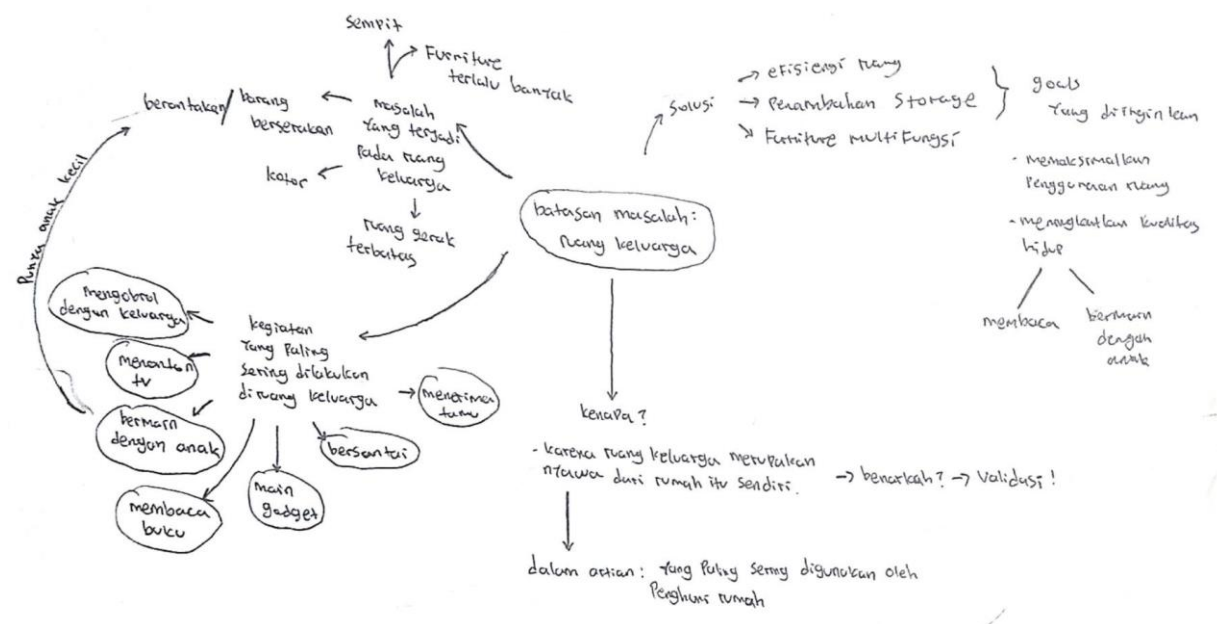 sempit
Furniture
terlalu banyak
berantakan/barang
berserakan
masalah
yang terjadi
pada ruang
keluarga
kotor
ruang gerak
terbatas
Punya anak kecil
batasan masalah:
ruang keluarga
Solusi
efisiensi ruang
Penambahan Storage
Furniture multifungsi
goals
yang diinginkan
- memaksimalkan
Penggunaan ruang
- meningkatkan kualitas
hidup
membaca
bermain
dengan
anak
kegiatan
yang paling
sering dilakukan
di ruang keluarga
mengobrol
dengan keluarga
menonton
tv
bermain
dengan anak
membaca
buku
main
gadget
bersantai
menerima
tamu
kenapa?
- karena ruang keluarga merupakan
nyawa dari rumah itu sendiri.
→ benarkah? → Validasi!
dalam artian: yang paling sering digunakan oleh
Penghuni rumah